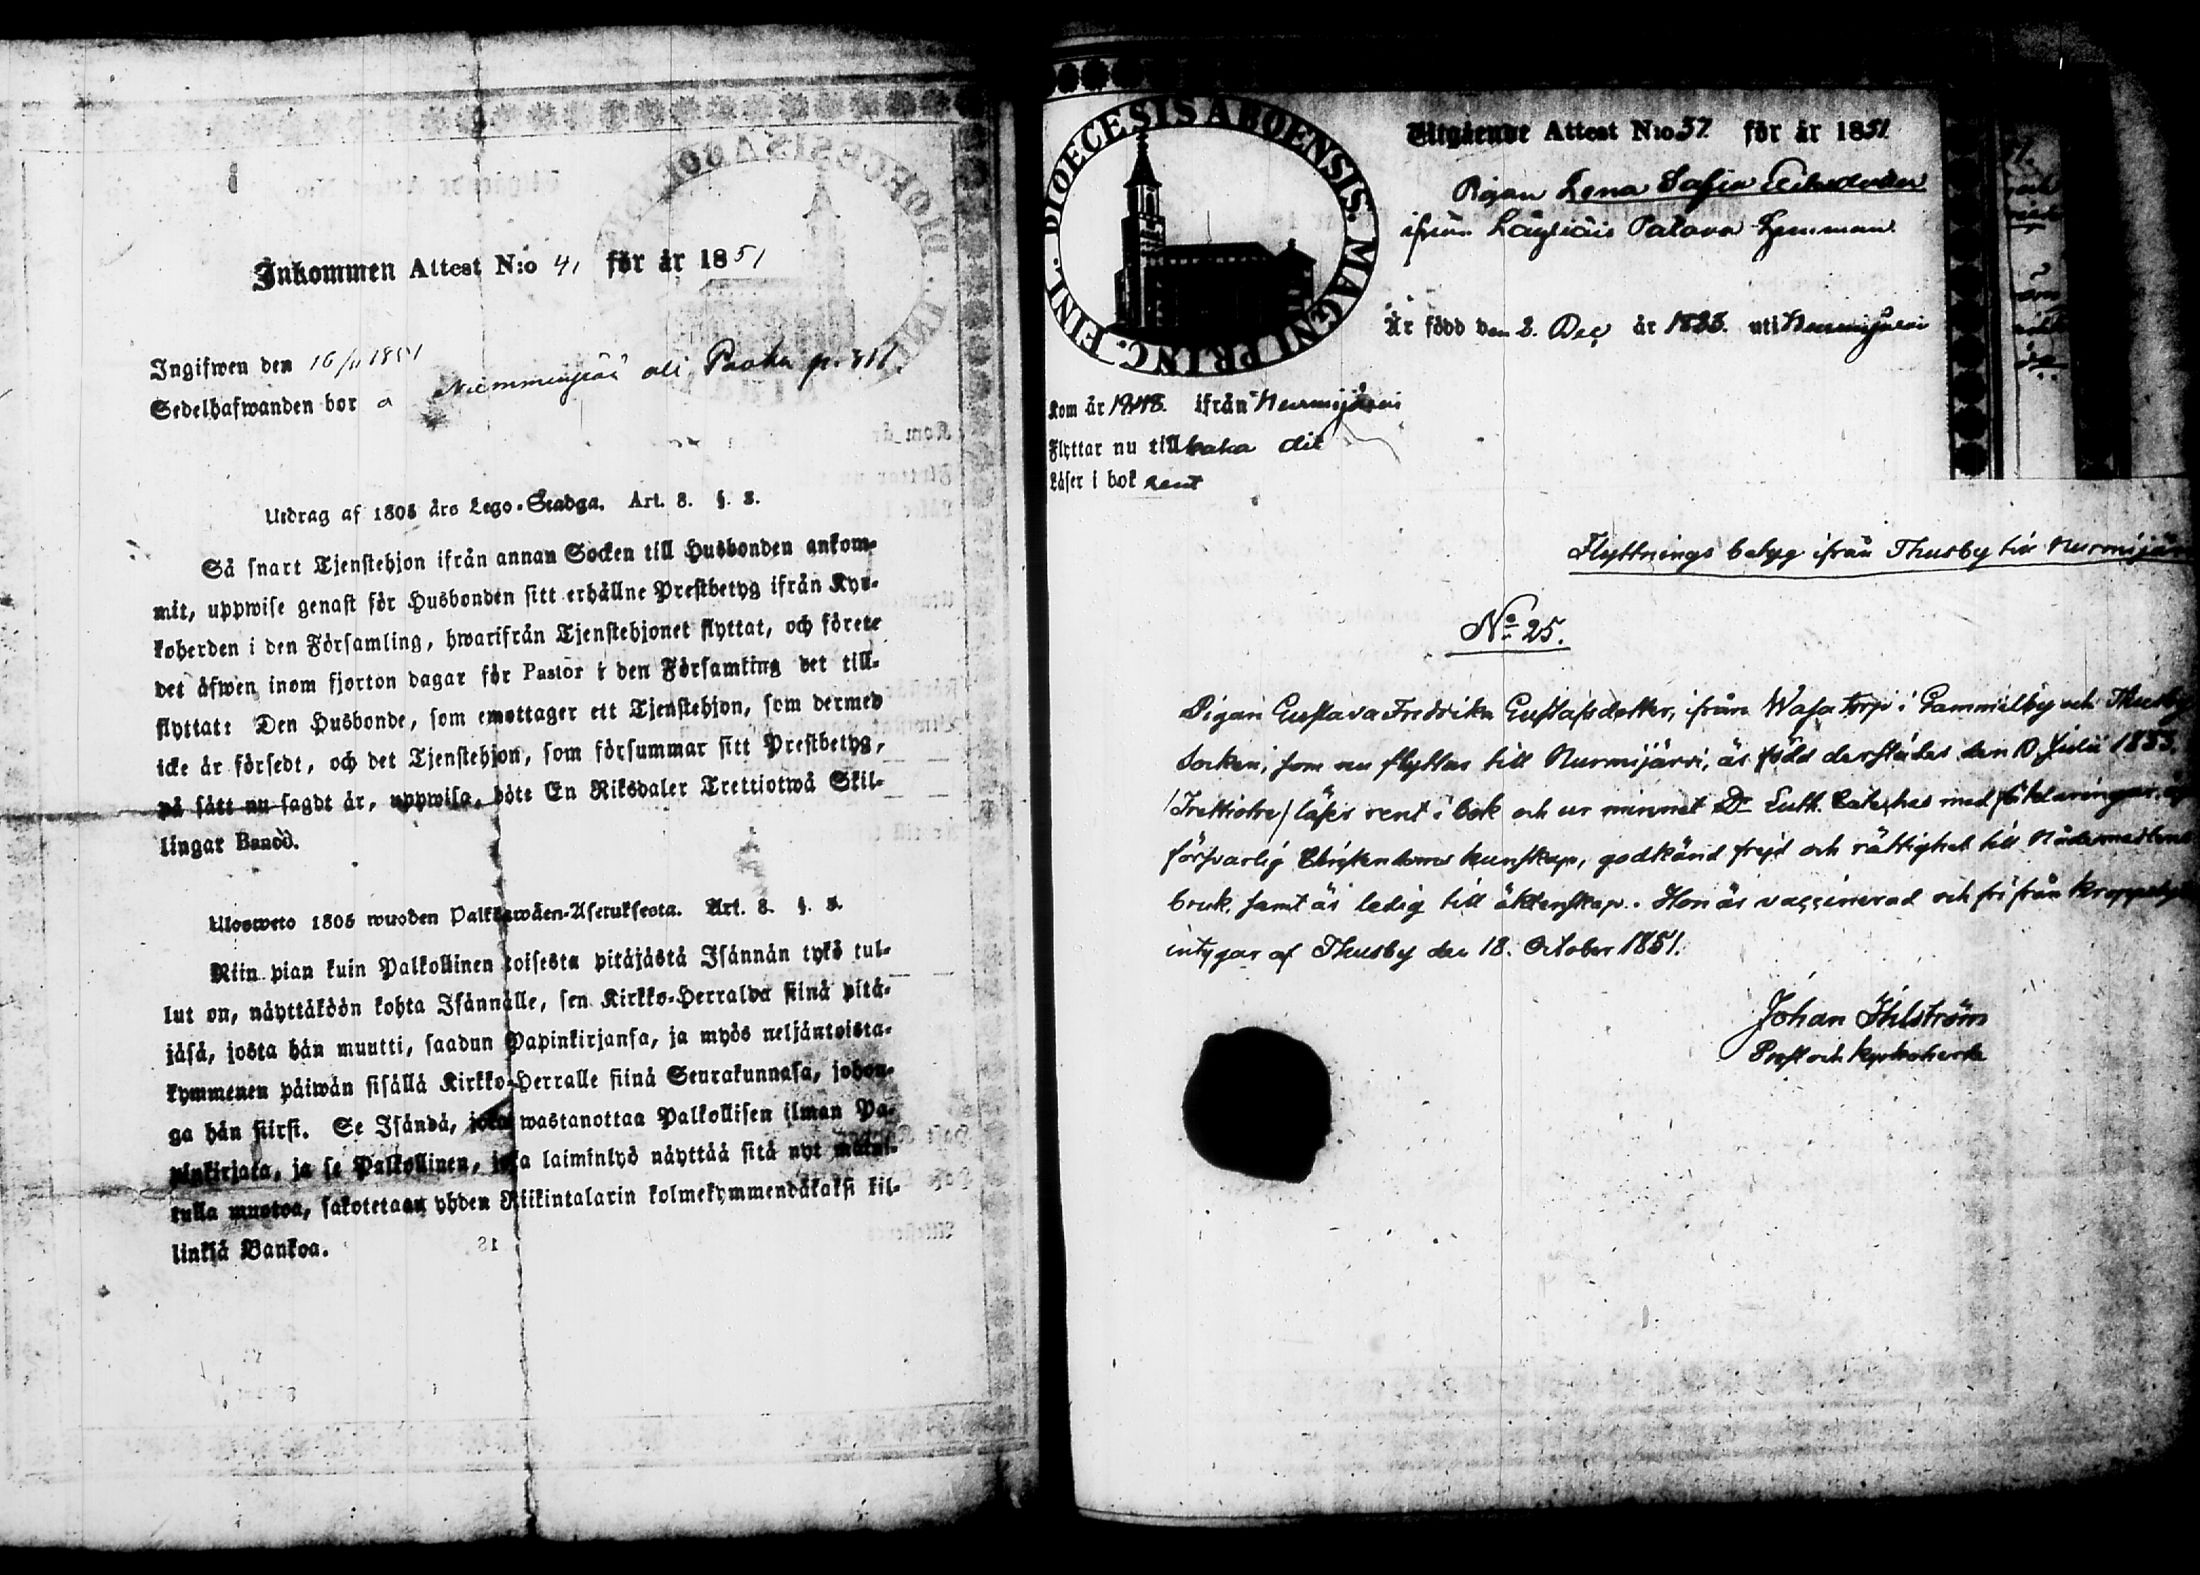 Inkommen Attest N:o 41 för år 1851
Ingifwen den 16/11 1851
Sedelhafwanden bor å
Utdrag af 1805 års Lego-Stadga. Art. 8. §. 2.
Så snart Tjenstehjon ifrån annan Socken till Husbonden ankom-
mit, uppwise genast för Husbonden sitt erhållne Prestbetyg ifrån Kyr-
koherden i den Församling, hwarifrån Tjenstehjonet flyttat, och förete
det äfwen inom fjorton dagar för Pastor i den Församling det till-
flyttat: Den Husbonde, som emottager ett Tjenstehjon, som dermed
icke är försedt, och det Tjenstehjon, som försummar sitt Prestbetyg,
på sätt nu sagdt är, uppwisa, böte En Riksdaler Trettiotwå Skil-
lingar Banco.
Ulosweto 1805 wuoden Palkkawäen-Asetuksesta. Art. 8. §. 2.
Niin pian kuin Palkollinen toisesta pitäjästä Isännän tykö tul-
lut on, näyttäköön kohta Isännälle, sen Kirkko-Herralda siinä pitä-
jäsä, josta hän muutti, saadun Papinkirjansa, ja myös neljäntoista-
kymmenen päiwän sisällä Kirkko-Herralle siinä Seurakunnasa, johon-
ga hän siirsi. Se Isändä, joka wastanottaa Palkollisen ilman Pa-
pinkirjata, ja se Palkollinen, joka laiminlyö näyttää sitä nyt mainit-
tulla muotoa, sakotetaan yhden Riikintalarin kolmekymmendäkaksi kil-
linkiä Bankoa.
DIOECESIS ABOENSIS. MAGNI PRINC. FINL.
Utgående Attest N:o 57 för år 1851
Pigan Lena Sofia
ifrån Palava Hemman
Är född den 2. Dec år 1823. uti Nurmijärvi
Kom år 1848. ifrån Nurmijärvi
Flyttar nu tillbaka dit
Läser i bok rent
Flyttnings betyg ifrån Thusby till Nurmijärvi
No 25.
Pigan Gustava Fredrika Gustafsdotter, ifrån Wasa torp i Gammelby och Thusby
Socken, som nu flyttar till Nurmijärvi, är född derstädes den 10 Julii 1833.
(Trettiotre) läser rent i bok och ur minnet Dr Luth. Cateches med förklaringar, äger
försvarlig Christendoms kunskap, godkänd frejd och rättighet till Nådemedlens
bruk, samt är ledig till äktenskap. Hon är vaccinerad och fri från kroppslyte
intygar af Thusby den 18. October 1851.
Johan Ihlström
Prost och kyrkoherde